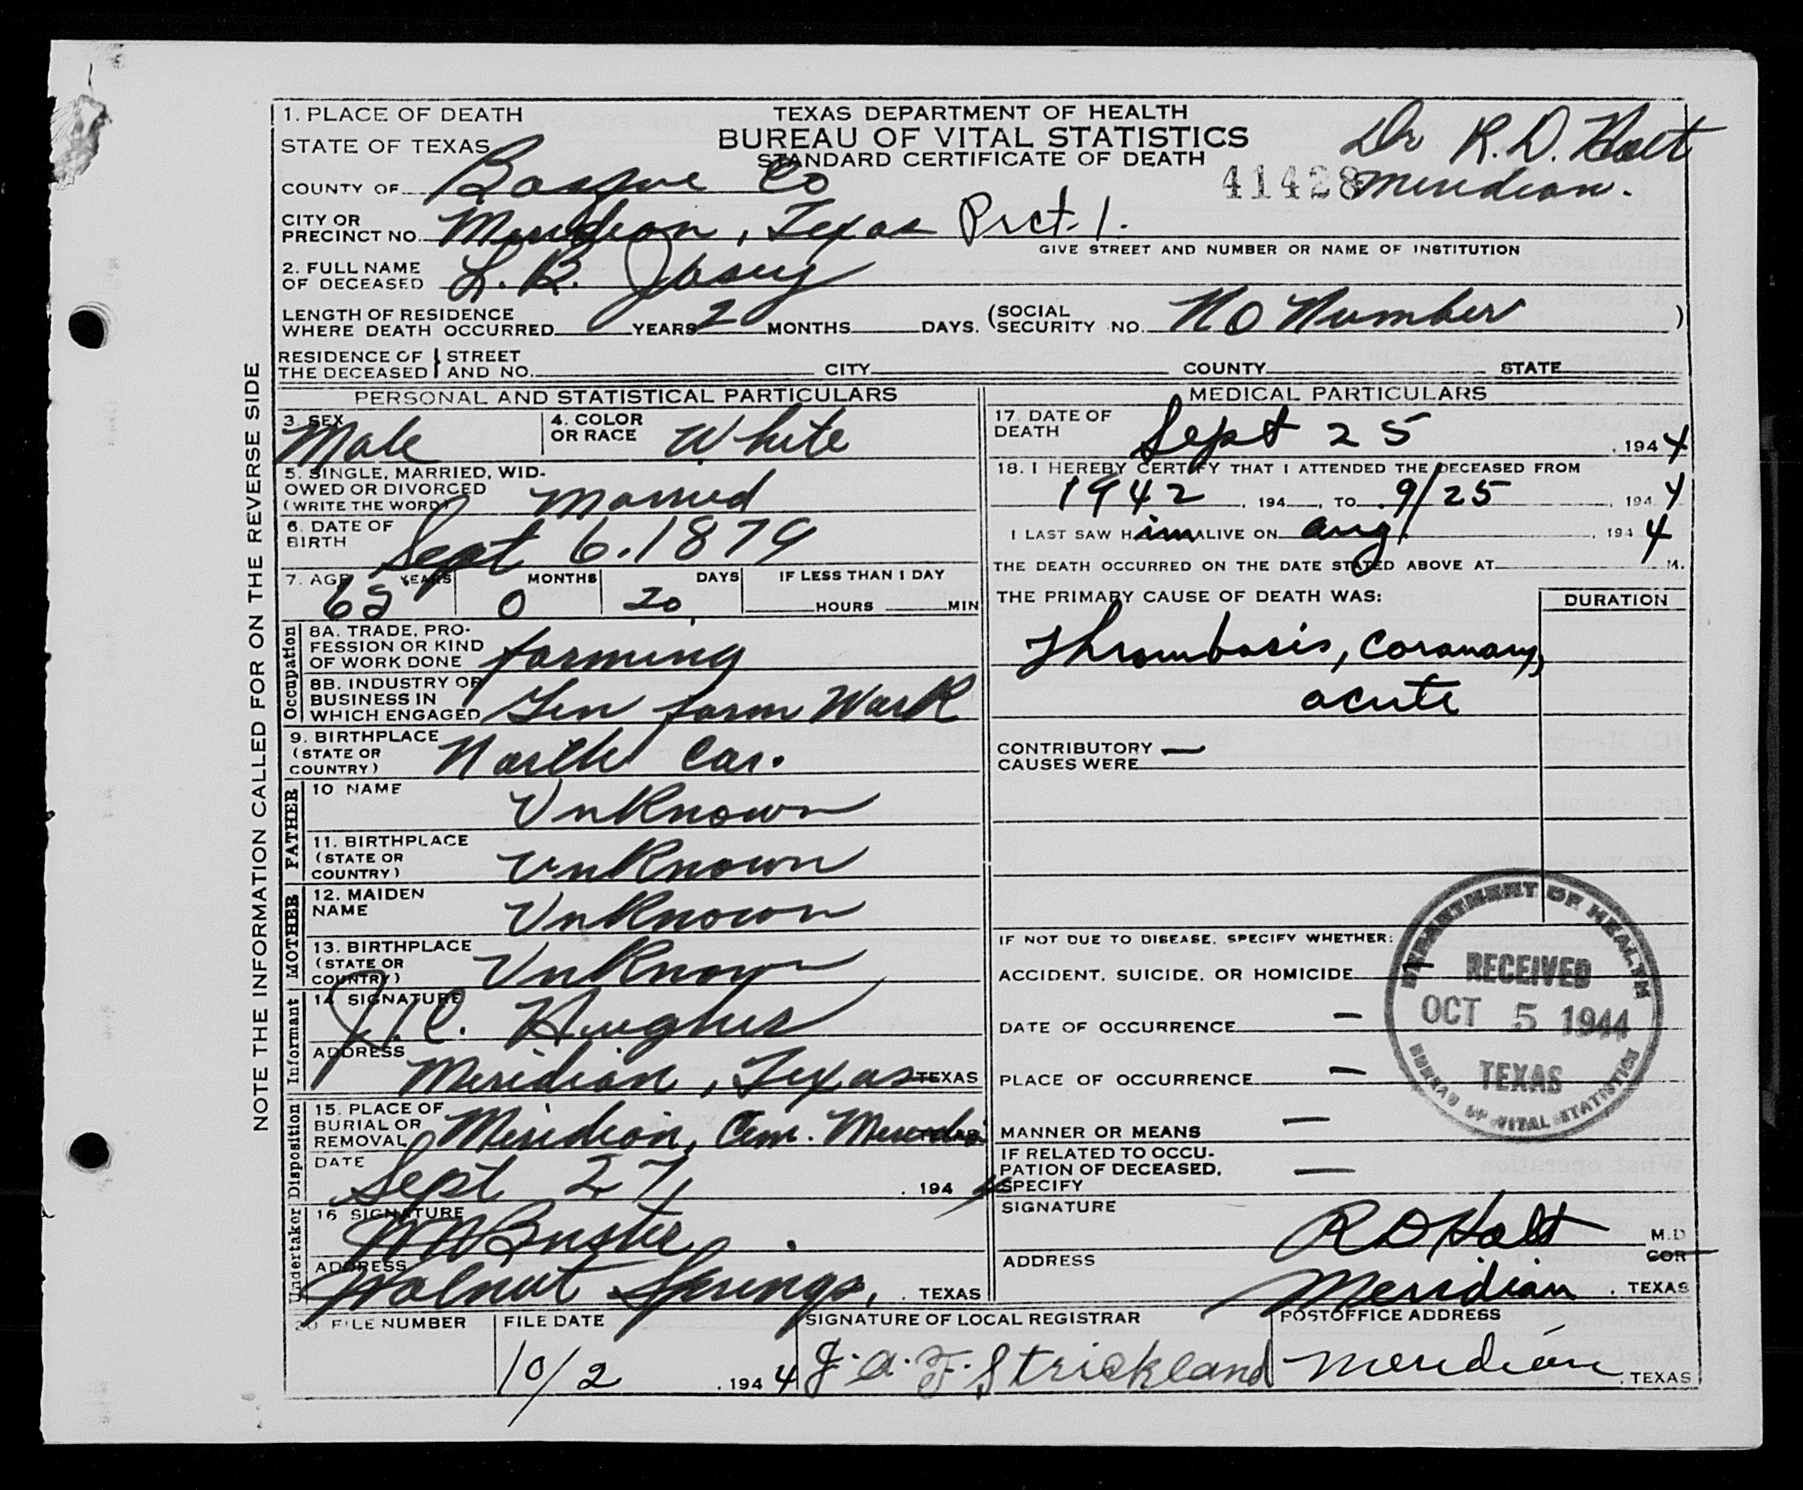 1. PLACE OF DEATH
STATE OF TEXAS
TEXAS DEPARTMENT OF HEALTH
BUREAU OF VITAL STATISTICS
STANDARD CERTIFICATE OF DEATH
41428
Dr R. D. Holt
Meridian.
COUNTY OF Bosque Co
CITY OR PRECINCT NO. Meridian, Texas Prct. 1.
GIVE STREET AND NUMBER OR NAME OF INSTITUTION
2. FULL NAME OF DECEASED L. B. Josey
LENGTH OF RESIDENCE WHERE DEATH OCCURRED YEARS 2 MONTHS DAYS. (SOCIAL SECURITY NO. No Number )
RESIDENCE OF THE DECEASED STREET AND NO. CITY COUNTY STATE
PERSONAL AND STATISTICAL PARTICULARS
3. SEX Male
4. COLOR OR RACE White
5. SINGLE, MARRIED, WIDOWED OR DIVORCED (WRITE THE WORD) Married
6. DATE OF BIRTH Sept 6. 1879
7. AGE 65 YEARS 0 MONTHS 20 DAYS IF LESS THAN 1 DAY HOURS MIN
Occupation
8A. TRADE, PROFESSION OR KIND OF WORK DONE farming
8B. INDUSTRY OR BUSINESS IN WHICH ENGAGED Gen farm Work
9. BIRTHPLACE (STATE OR COUNTRY) North Car.
FATHER
10 NAME Unknown
11. BIRTHPLACE (STATE OR COUNTRY) Unknown
MOTHER
12. MAIDEN NAME Unknown
13. BIRTHPLACE (STATE OR COUNTRY) Unknown
Informant
14 SIGNATURE J. C. Hughes
ADDRESS Meridian, Texas TEXAS
Disposition
15. PLACE OF BURIAL OR REMOVAL Meridian, Cem. Meridian
DATE Sept 27, 1944
Undertaker
16 SIGNATURE W W Buster
ADDRESS Walnut Springs, TEXAS
MEDICAL PARTICULARS
17. DATE OF DEATH Sept 25, 1944
18. I HEREBY CERTIFY THAT I ATTENDED THE DECEASED FROM
1942, 194 , TO 9/25, 1944
I LAST SAW HIM ALIVE ON Aug, 1944
THE DEATH OCCURRED ON THE DATE STATED ABOVE AT M.
THE PRIMARY CAUSE OF DEATH WAS: DURATION
Thrombosis, Coronary,
acute
CONTRIBUTORY CAUSES WERE —
IF NOT DUE TO DISEASE, SPECIFY WHETHER:
ACCIDENT, SUICIDE, OR HOMICIDE —
DATE OF OCCURRENCE —
PLACE OF OCCURRENCE —
MANNER OR MEANS —
IF RELATED TO OCCUPATION OF DECEASED, SPECIFY —
DEPARTMENT OF HEALTH
RECEIVED
OCT 5 1944
TEXAS
BUREAU OF VITAL STATISTICS
SIGNATURE R D Holt M.D. COR
ADDRESS Meridian, TEXAS
20 FILE NUMBER
FILE DATE 10/2, 1944
SIGNATURE OF LOCAL REGISTRAR J. A. F. Strickland
POSTOFFICE ADDRESS Meridian, TEXAS
NOTE THE INFORMATION CALLED FOR ON THE REVERSE SIDE